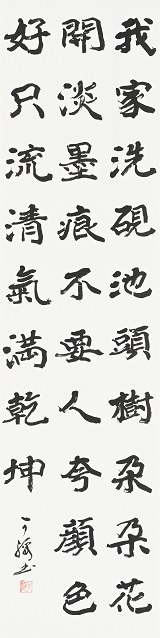 我家洗硯池頭樹朶朶花
開淡墨痕不要人夸顔色
好只流清氣滿乾坤